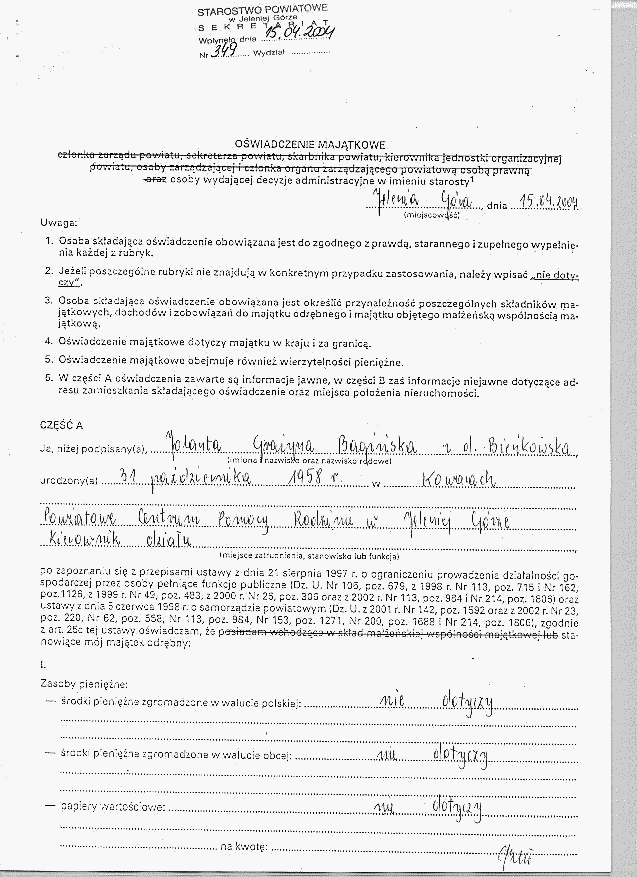 STAROSTWO POWIATOWE
w Jeleniej Górze
SEKRETARIAT
Wpłynęło dnia 15.04.2004
Nr 349 Wydział
OŚWIADCZENIE MAJĄTKOWE
członka zarządu powiatu, sekretarza powiatu, skarbnika powiatu, kierownika jednostki organizacyjnej
powiatu, osoby zarządzającej i członka organu zarządzającego powiatową osobą prawną
oraz osoby wydającej decyzje administracyjne w imieniu starosty¹
Jelenia Góra, dnia 15.04.2004
(miejscowość)
Uwaga:
1. Osoba składająca oświadczenie obowiązana jest do zgodnego z prawdą, starannego i zupełnego wypełnie-
nia każdej z rubryk.
2. Jeżeli poszczególne rubryki nie znajdują w konkretnym przypadku zastosowania, należy wpisać „nie doty-
czy".
3. Osoba składająca oświadczenie obowiązana jest określić przynależność poszczególnych składników ma-
jątkowych, dochodów i zobowiązań do majątku odrębnego i majątku objętego małżeńską wspólnością ma-
jątkową.
4. Oświadczenie majątkowe dotyczy majątku w kraju i za granicą.
5. Oświadczenie majątkowe obejmuje również wierzytelności pieniężne.
6. W części A oświadczenia zawarte są informacje jawne, w części B zaś informacje niejawne dotyczące ad-
resu zamieszkania składającego oświadczenie oraz miejsca położenia nieruchomości.
CZĘŚĆ A
Ja, niżej podpisany(a), Jolanta Grażyna Bagińska z d. Bieńkowska
(imiona i nazwisko oraz nazwisko rodowe)
urodzony(a) 31 października 1958 r. w Kowarach
Powiatowe Centrum Pomocy Rodzinie w Jeleniej Górze
kierownik działu
(miejsce zatrudnienia, stanowisko lub funkcja)
po zapoznaniu się z przepisami ustawy z dnia 21 sierpnia 1997 r. o ograniczeniu prowadzenia działalności go-
spodarczej przez osoby pełniące funkcje publiczne (Dz. U. Nr 106, poz. 679, z 1998 r. Nr 113, poz. 715 i Nr 162,
poz. 1126, z 1999 r. Nr 49, poz. 483, z 2000 r. Nr 26, poz. 306 oraz z 2002 r. Nr 113, poz. 984 i Nr 214, poz. 1806) oraz
ustawy z dnia 5 czerwca 1998 r. o samorządzie powiatowym (Dz. U. z 2001 r. Nr 142, poz. 1592 oraz z 2002 r. Nr 23,
poz. 220, Nr 62, poz. 558, Nr 113, poz. 984, Nr 153, poz. 1271, Nr 200, poz. 1688 i Nr 214, poz. 1806), zgodnie
z art. 25c tej ustawy oświadczam, że posiadam wchodzące w skład małżeńskiej wspólności majątkowej lub sta-
nowiące mój majątek odrębny:
I.
Zasoby pieniężne:
— środki pieniężne zgromadzone w walucie polskiej: nie dotyczy
— środki pieniężne zgromadzone w walucie obcej: nie dotyczy
— papiery wartościowe: nie dotyczy
na kwotę: